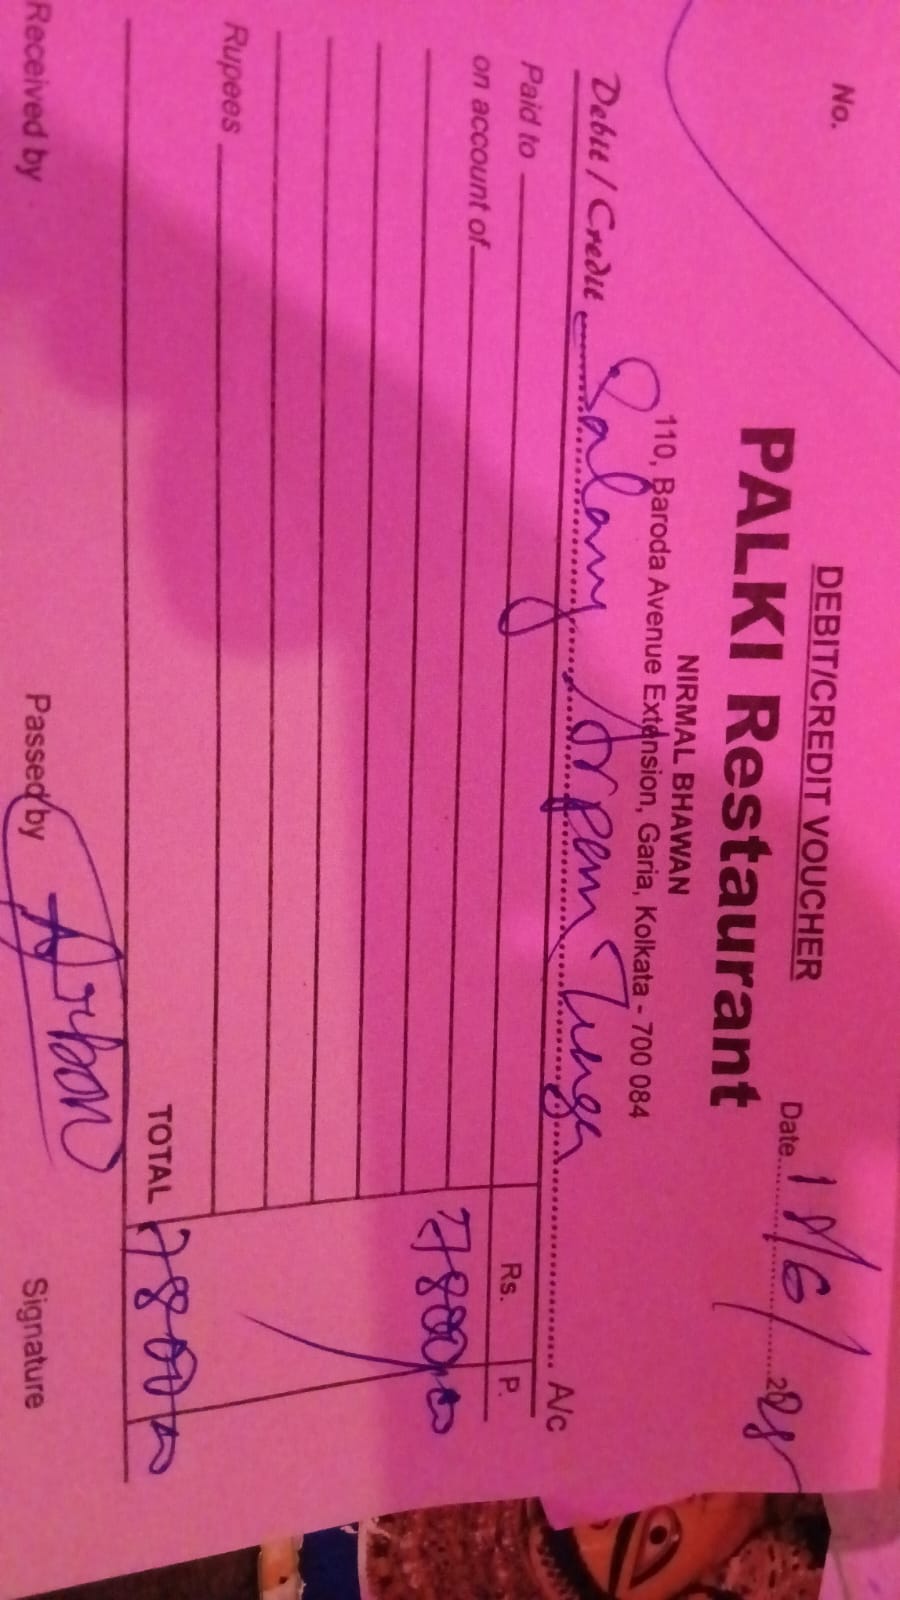 DEBIT/CREDIT VOUCHER
No.
PALKI Restaurant
NIRMAL BHAWAN
110, Baroda Avenue Extension, Garia, Kolkata - 700 084
Date
Debit / Credit Salary Arpan Tunga A/c
Paid to Rs. P.
on account of 7800/00
Rupees
TOTAL 7800/00
Received by Passed by Signature